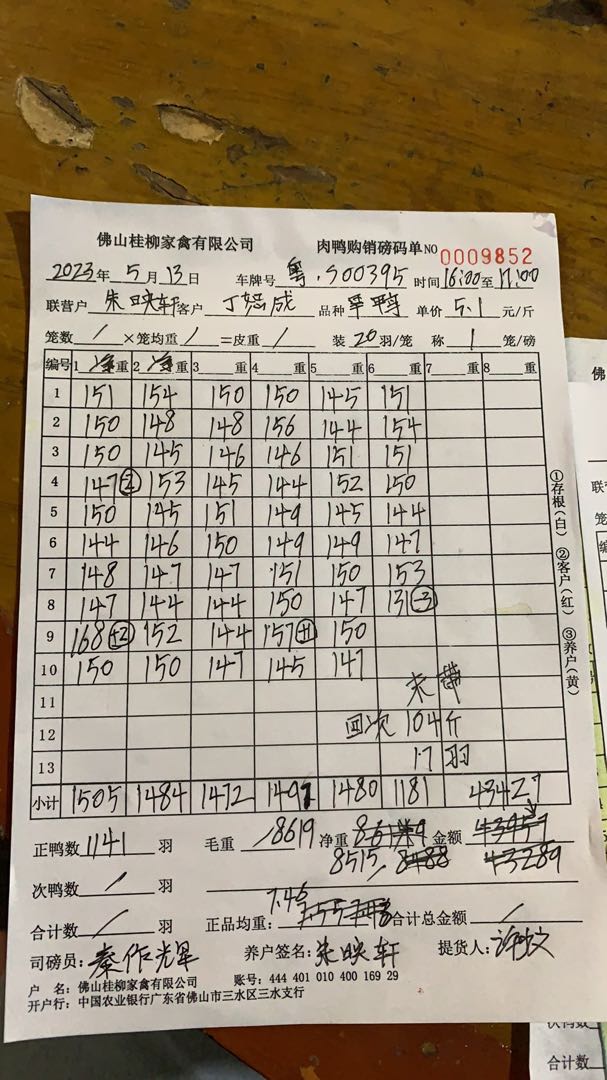 佛山桂柳家禽有限公司 肉鸭购销磅码单 NO 0009852
2023年5月13日 车牌号 粤.S00395 时间 16:00至17:00
联营户 朱映轩 客户 丁恕成 品种 单价 5.1 元/斤
笼数 / ×笼均重 / =皮重 / 装 20 羽/笼 称 1 笼/磅
编号 1 净重 2 净重 3 重 4 重 5 重 6 重 7 重 8 重
1 151 154 150 150 145 151
2 150 148 148 156 144 154
3 150 145 146 146 151 151
4 147 153 145 144 152 150
5 150 145 151 149 145 144
6 144 146 150 149 149 147
7 148 147 147 151 150 153
8 147 144 144 150 147 131 -3
9 168 +2 152 144 157 +1 150
10 150 150 147 145 147
11
12 回次 104斤
13 17羽
小计 1505 1484 1472 1497 1480 1181 43427
正鸭数 1141 羽 毛重 /8619 净重 金额
8515/ 43289
次鸭数 / 羽
7.46
合计数 / 羽 正品均重: 合计总金额 /
司磅员: 秦作光辉 养户签名: 朱映轩 提货人:
户 名: 佛山桂柳家禽有限公司 账号: 444 401 010 400 169 29
开户行: 中国农业银行广东省佛山市三水区三水支行
①存根(白) ②客户(红) ③养户(黄)
次鸭数
合计数